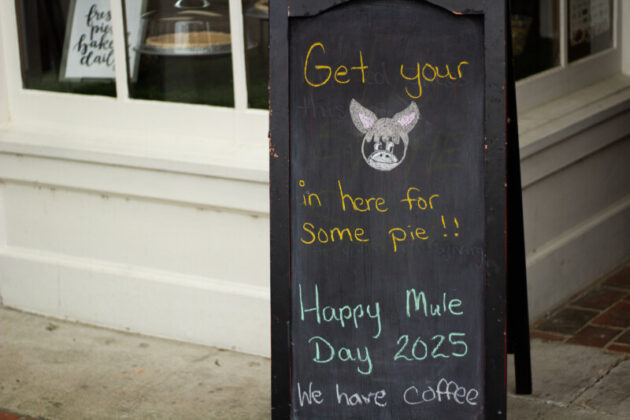 fresh
pies
baked
daily
Get your
in here for
some pie !!
Happy Mule
Day 2025
We have coffee